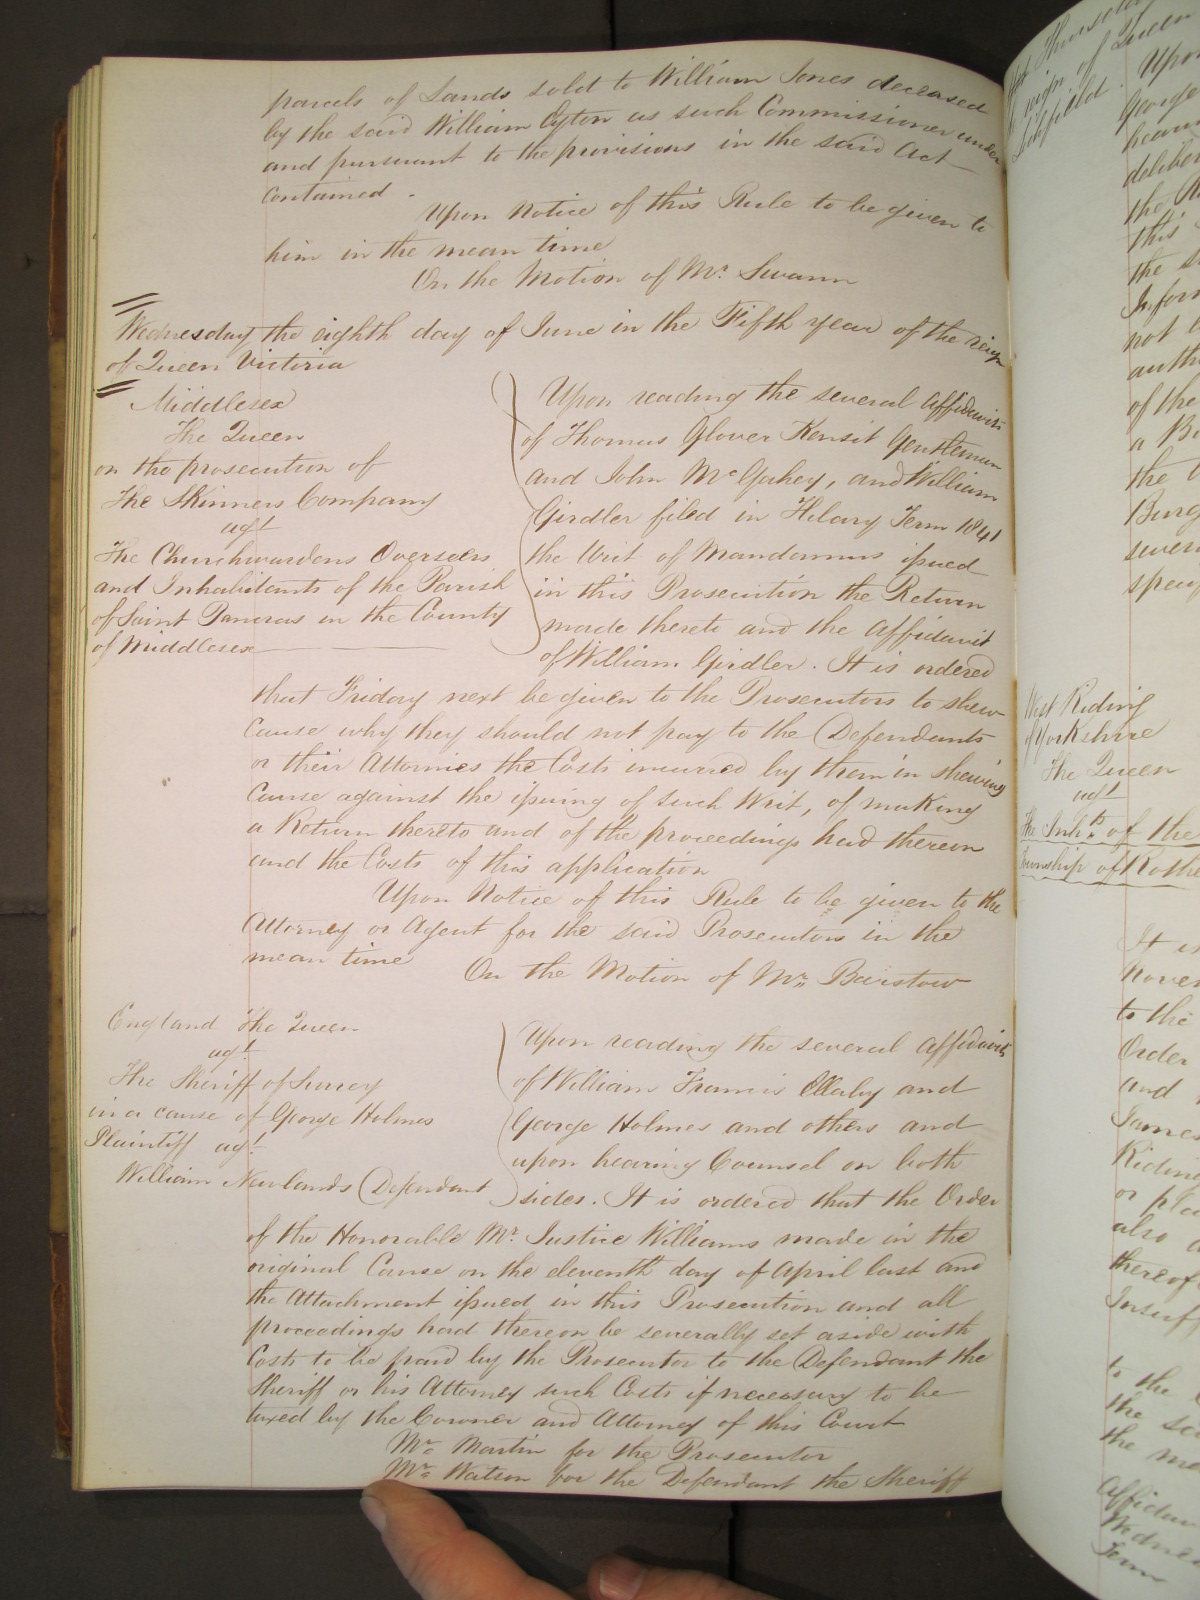 parcels of Lands sold to William Jones deceased
by the said William Eyton as such Commissioner under
and pursuant to the provisions in the said Act
contained -
Upon Notice of this Rule to be given to
him in the mean time
On the Motion of Mr. Swann
Wednesday the eighth day of June in the Fifth year of the reign
of Queen Victoria
Middlesex
The Queen
on the prosecution of
The Skinners Company
agt
The Churchwardens Overseers
and Inhabitants of the Parish
of Saint Pancras in the County
of Middlesex
Upon reading the several Affidavits
of Thomas Glover Kensit Gentleman
and John McGahey, and William
Girdler filed in Hilary Term 1841
the Writ of Mandamus issued
in this Prosecution the Return
made thereto and the Affidavit
of William Girdler. It is ordered
that Friday next be given to the Prosecutors to shew
Cause why they should not pay to the Defendants
or their Attornies the Costs incurred by them in shewing
Cause against the issuing of such Writ, of making
a Return thereto and of the proceedings had thereon
and the Costs of this application
Upon Notice of this Rule to be given to the
Attorney or Agent for the said Prosecutors in the
mean time
On the Motion of Mr. Bairstow
England The Queen
agt.
The Sheriff of Surrey
in a cause of George Holmes
Plaintiff agt.
William Newlands Defendant
Upon reading the several Affidavits
of William Francis Ellaby and
George Holmes and others and
upon hearing Counsel on both
sides. It is ordered that the Order
of the Honorable Mr. Justice Williams made in the
original Cause on the eleventh day of April last and
the Attachment issued in this Prosecution and all
proceedings had thereon be severally set aside with
Costs to be paid by the Prosecutor to the Defendant the
Sheriff or his Attorney such Costs if necessary to be
taxed by the Coroner and Attorney of this Court
Mr. Martin for the Prosecutor
Mr. Watson for the Defendant the Sheriff
reign of Queen
Lichfield
Upon
George
the
this
the
not
of the
a
the
West Riding
of Yorkshire
The Queen
agt
The Inhts. of the
Township of
It is
to the
Order
and
James
Riding
or
also
thereof
to the
the
the
Term